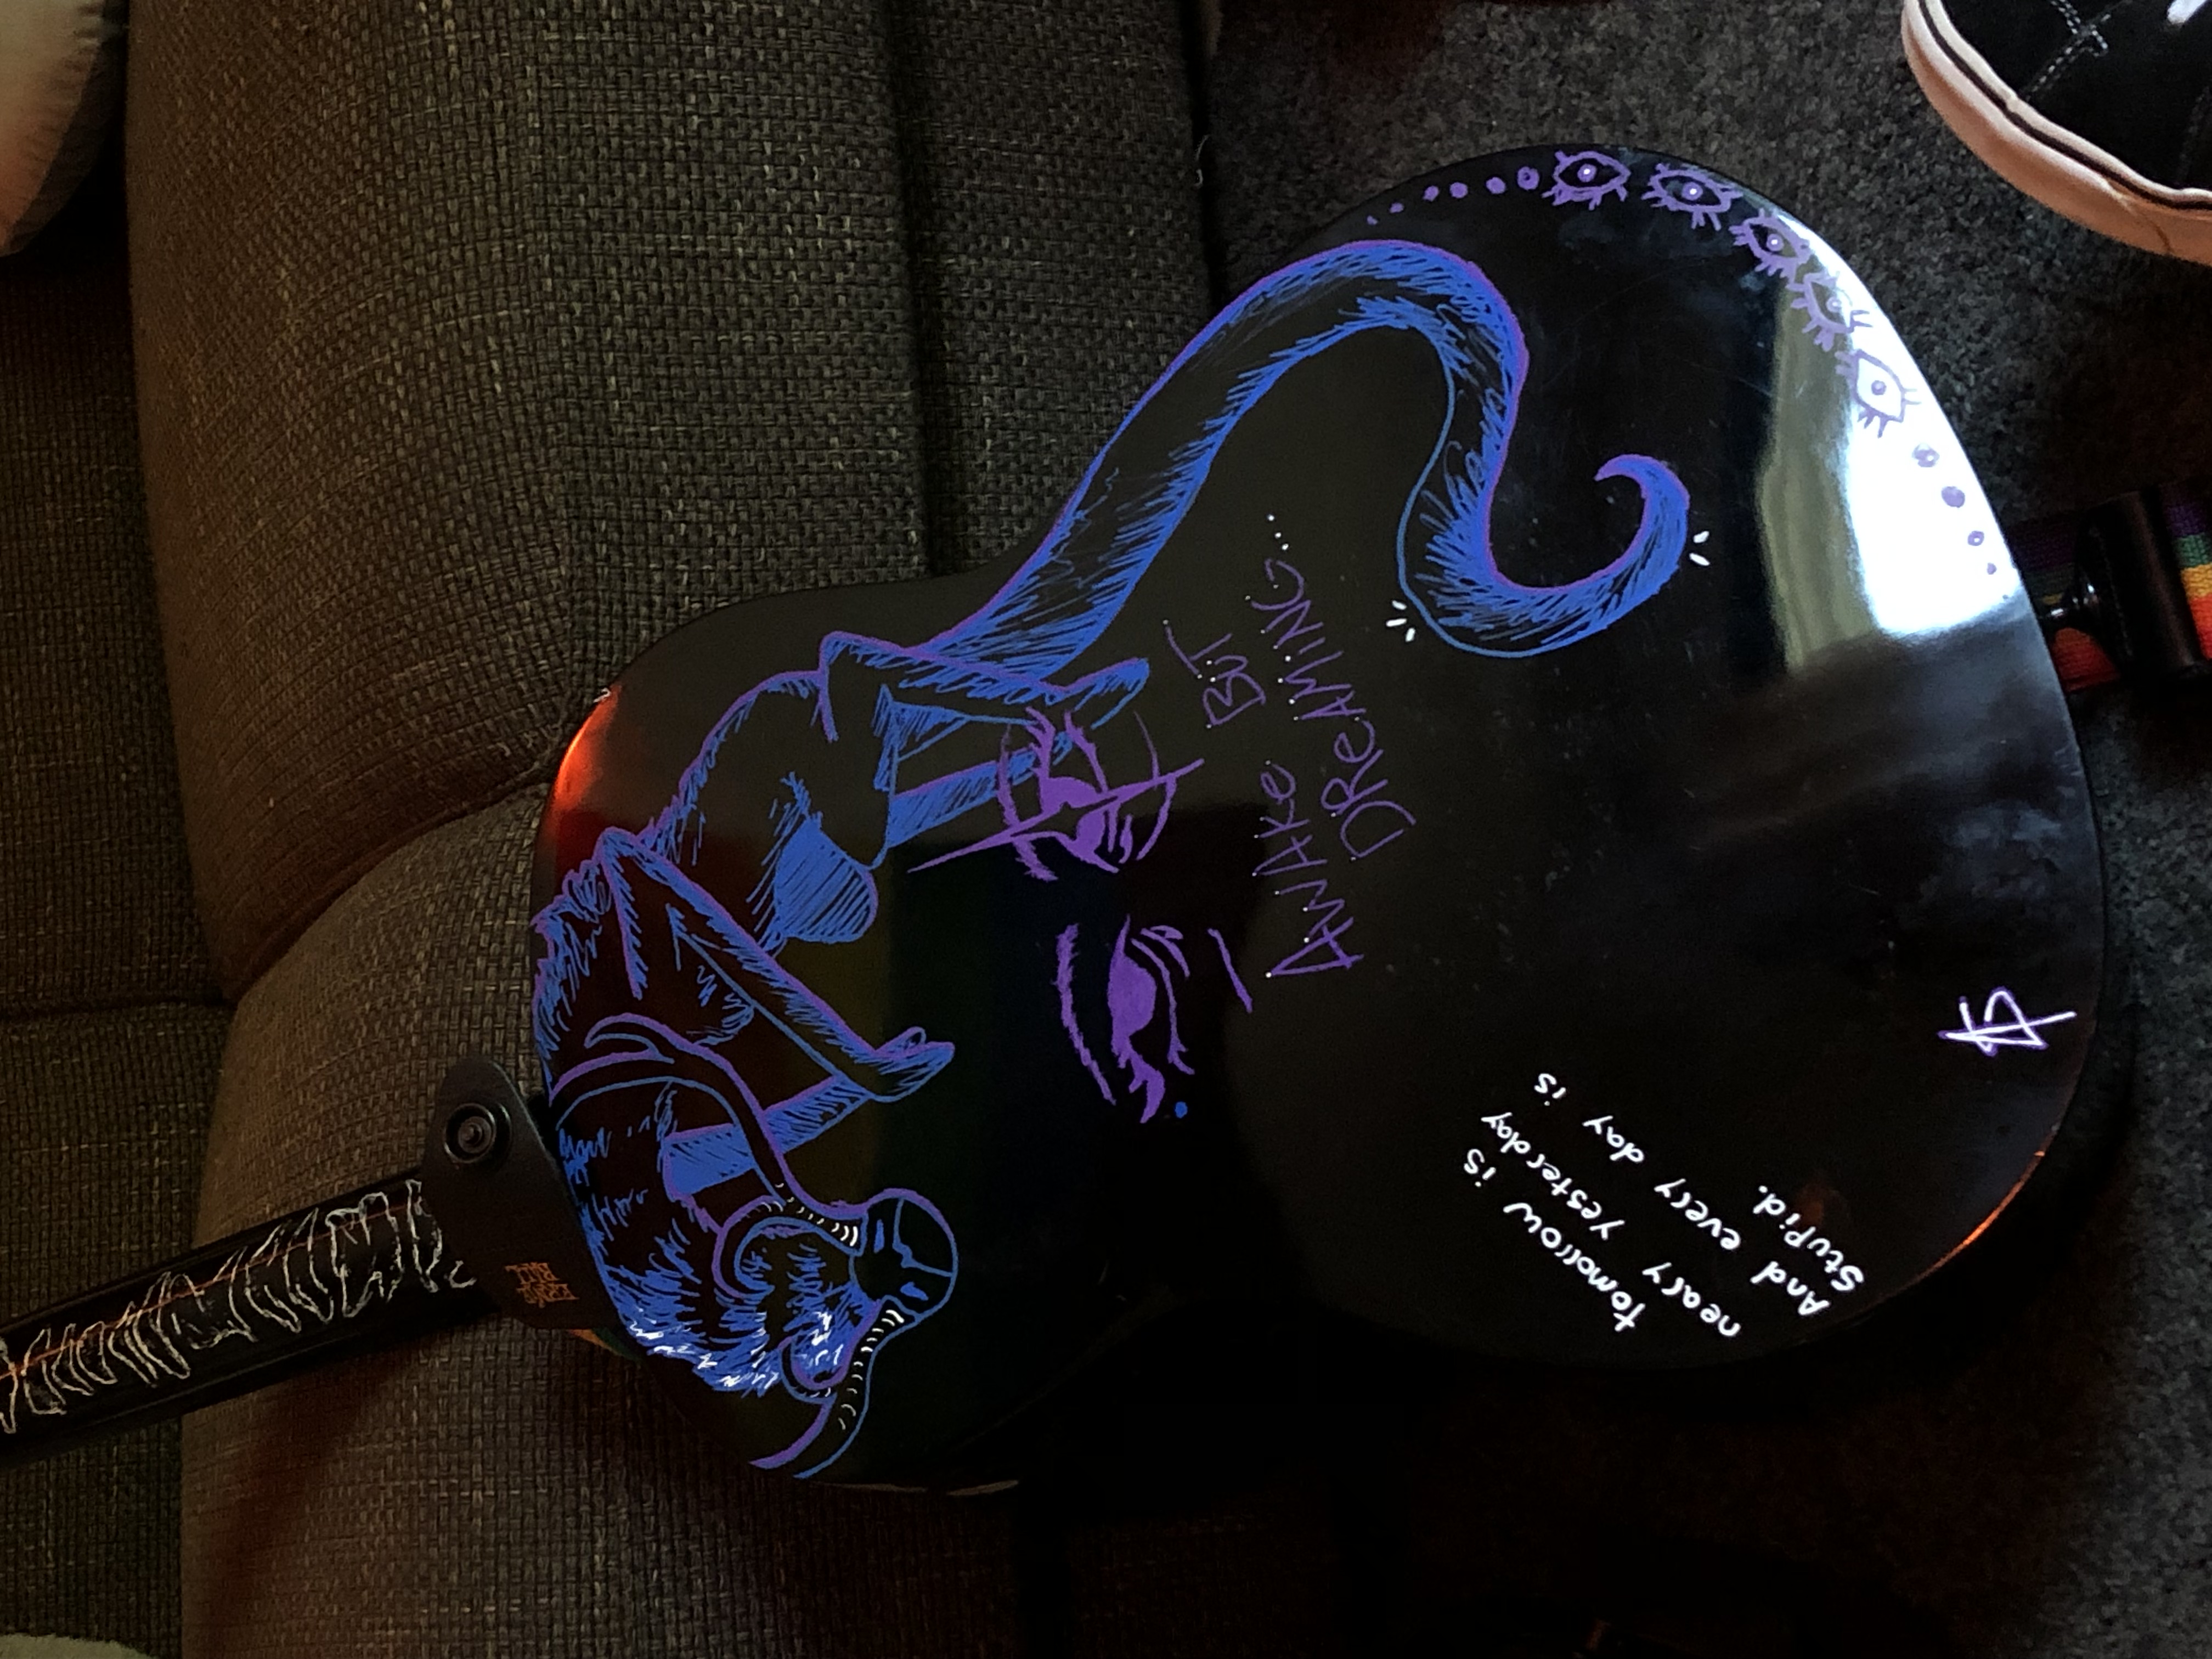 ERNIE
BALL
AWAKe BUT
DReAMiNG...
tomorrow is
neary yesterday
And every day is
StuPid.
AS